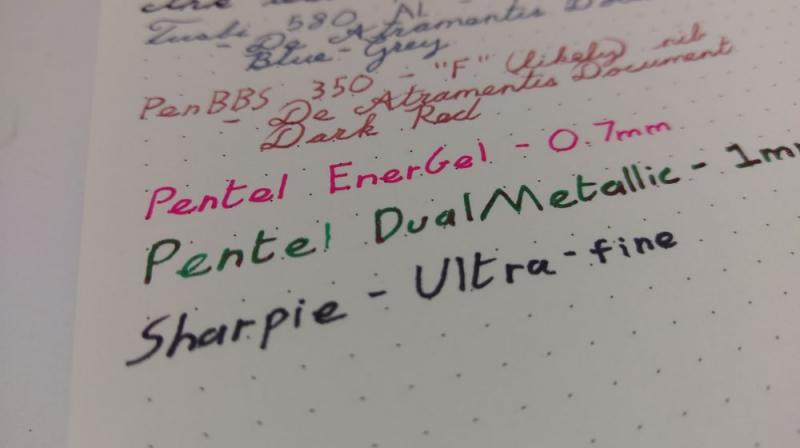 Twsbi 580 AL
- De Atramentis
Blue-Grey
PenBBS 350 - "F" (likely) nib
- De Atramentis Document
Dark Red
Pentel EnerGel - 0.7mm
Pentel DualMetallic - 1m
Sharpie - Ultra-fine